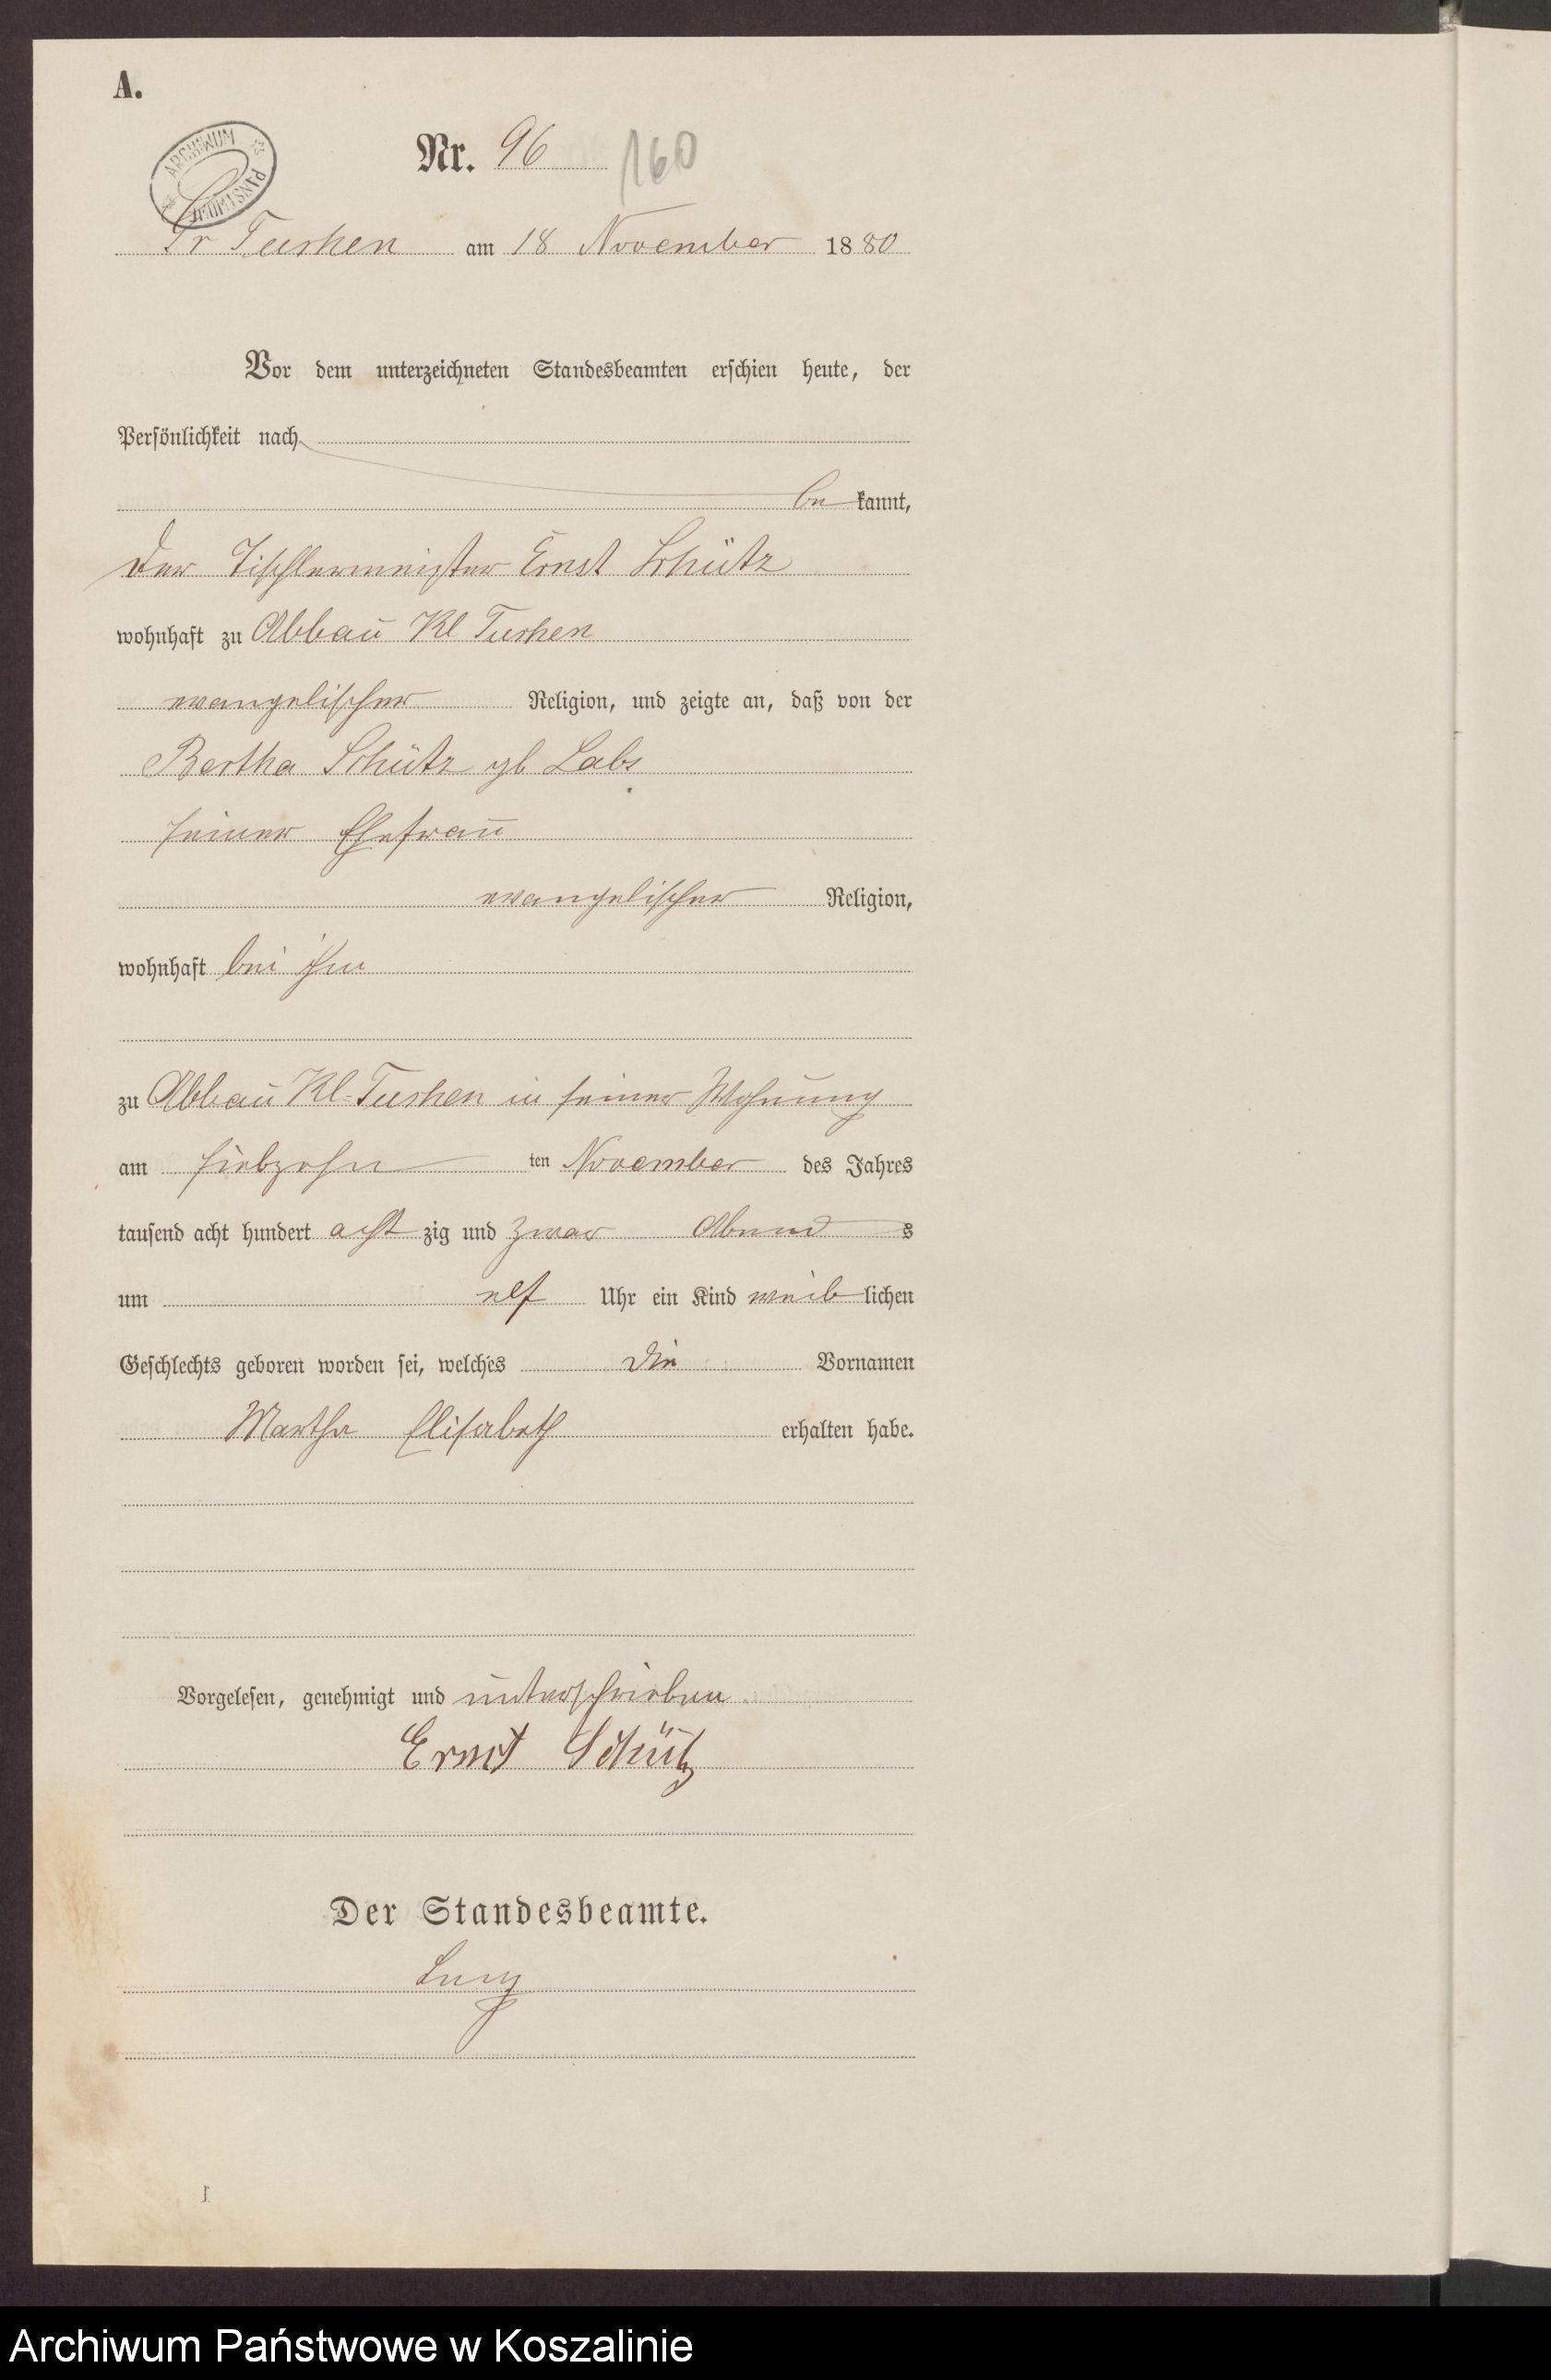 A.
ARCHIWUM PAŃSTWOWE
Nr. 96 160
Gr Tuchen am 18 November 1880
Vor dem unterzeichneten Standesbeamten erschien heute, der
Persönlichkeit nach
be kannt,
der Tischlermeister Ernst Schütz
wohnhaft zu Abbau Kl Tuchen
evangelischer Religion, und zeigte an, daß von der
Bertha Schütz gb Labs
seiner Ehefrau
evangelischer Religion,
wohnhaft bei ihm
zu Abbau Kl-Tuchen in seiner Wohnung
am siebzehn ten November des Jahres
tausend acht hundert acht zig und zwar Abend s
um elf Uhr ein Kind weib lichen
Geschlechts geboren worden sei, welches die Vornamen
Martha Elisabeth erhalten habe.
Vorgelesen, genehmigt und unterschrieben
Ernst Schütz
Der Standesbeamte.
Archiwum Państwowe w Koszalinie